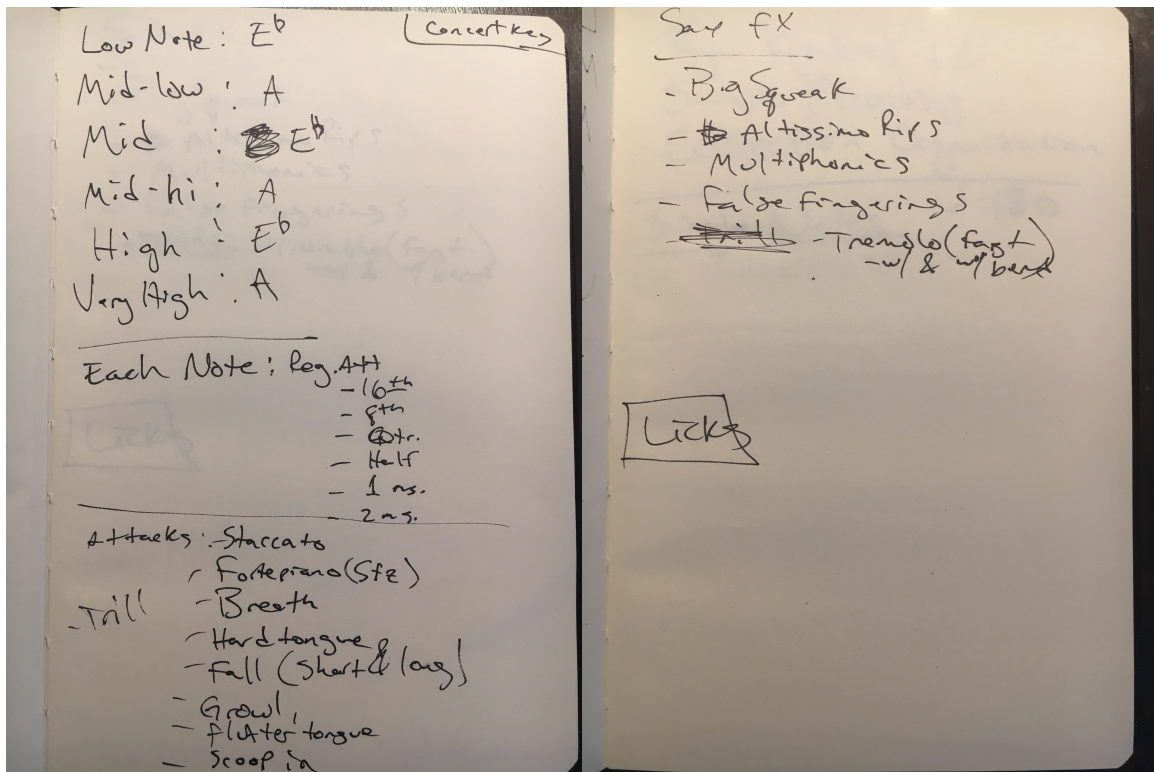 Concert Key
Low Note: E♭
Mid-low: A
Mid : E♭
Mid-hi: A
High : E♭
Very High: A
Each Note: Reg. Att
- 16th
- 8th
- Qtr.
- Half
- 1 ms.
- 2 ms.
Attacks: - Staccato
- Fortepiano (Sfz)
- Breath
- Trill
- Hard tongue
- Fall (Short & long)
- Growl
- flutter tongue
- Scoop in
Sax FX
- Big Squeak
- Altissimo Rips
- Multiphonics
- False fingerings
- Tremolo (fast)
- w/ & w/ bend
Licks